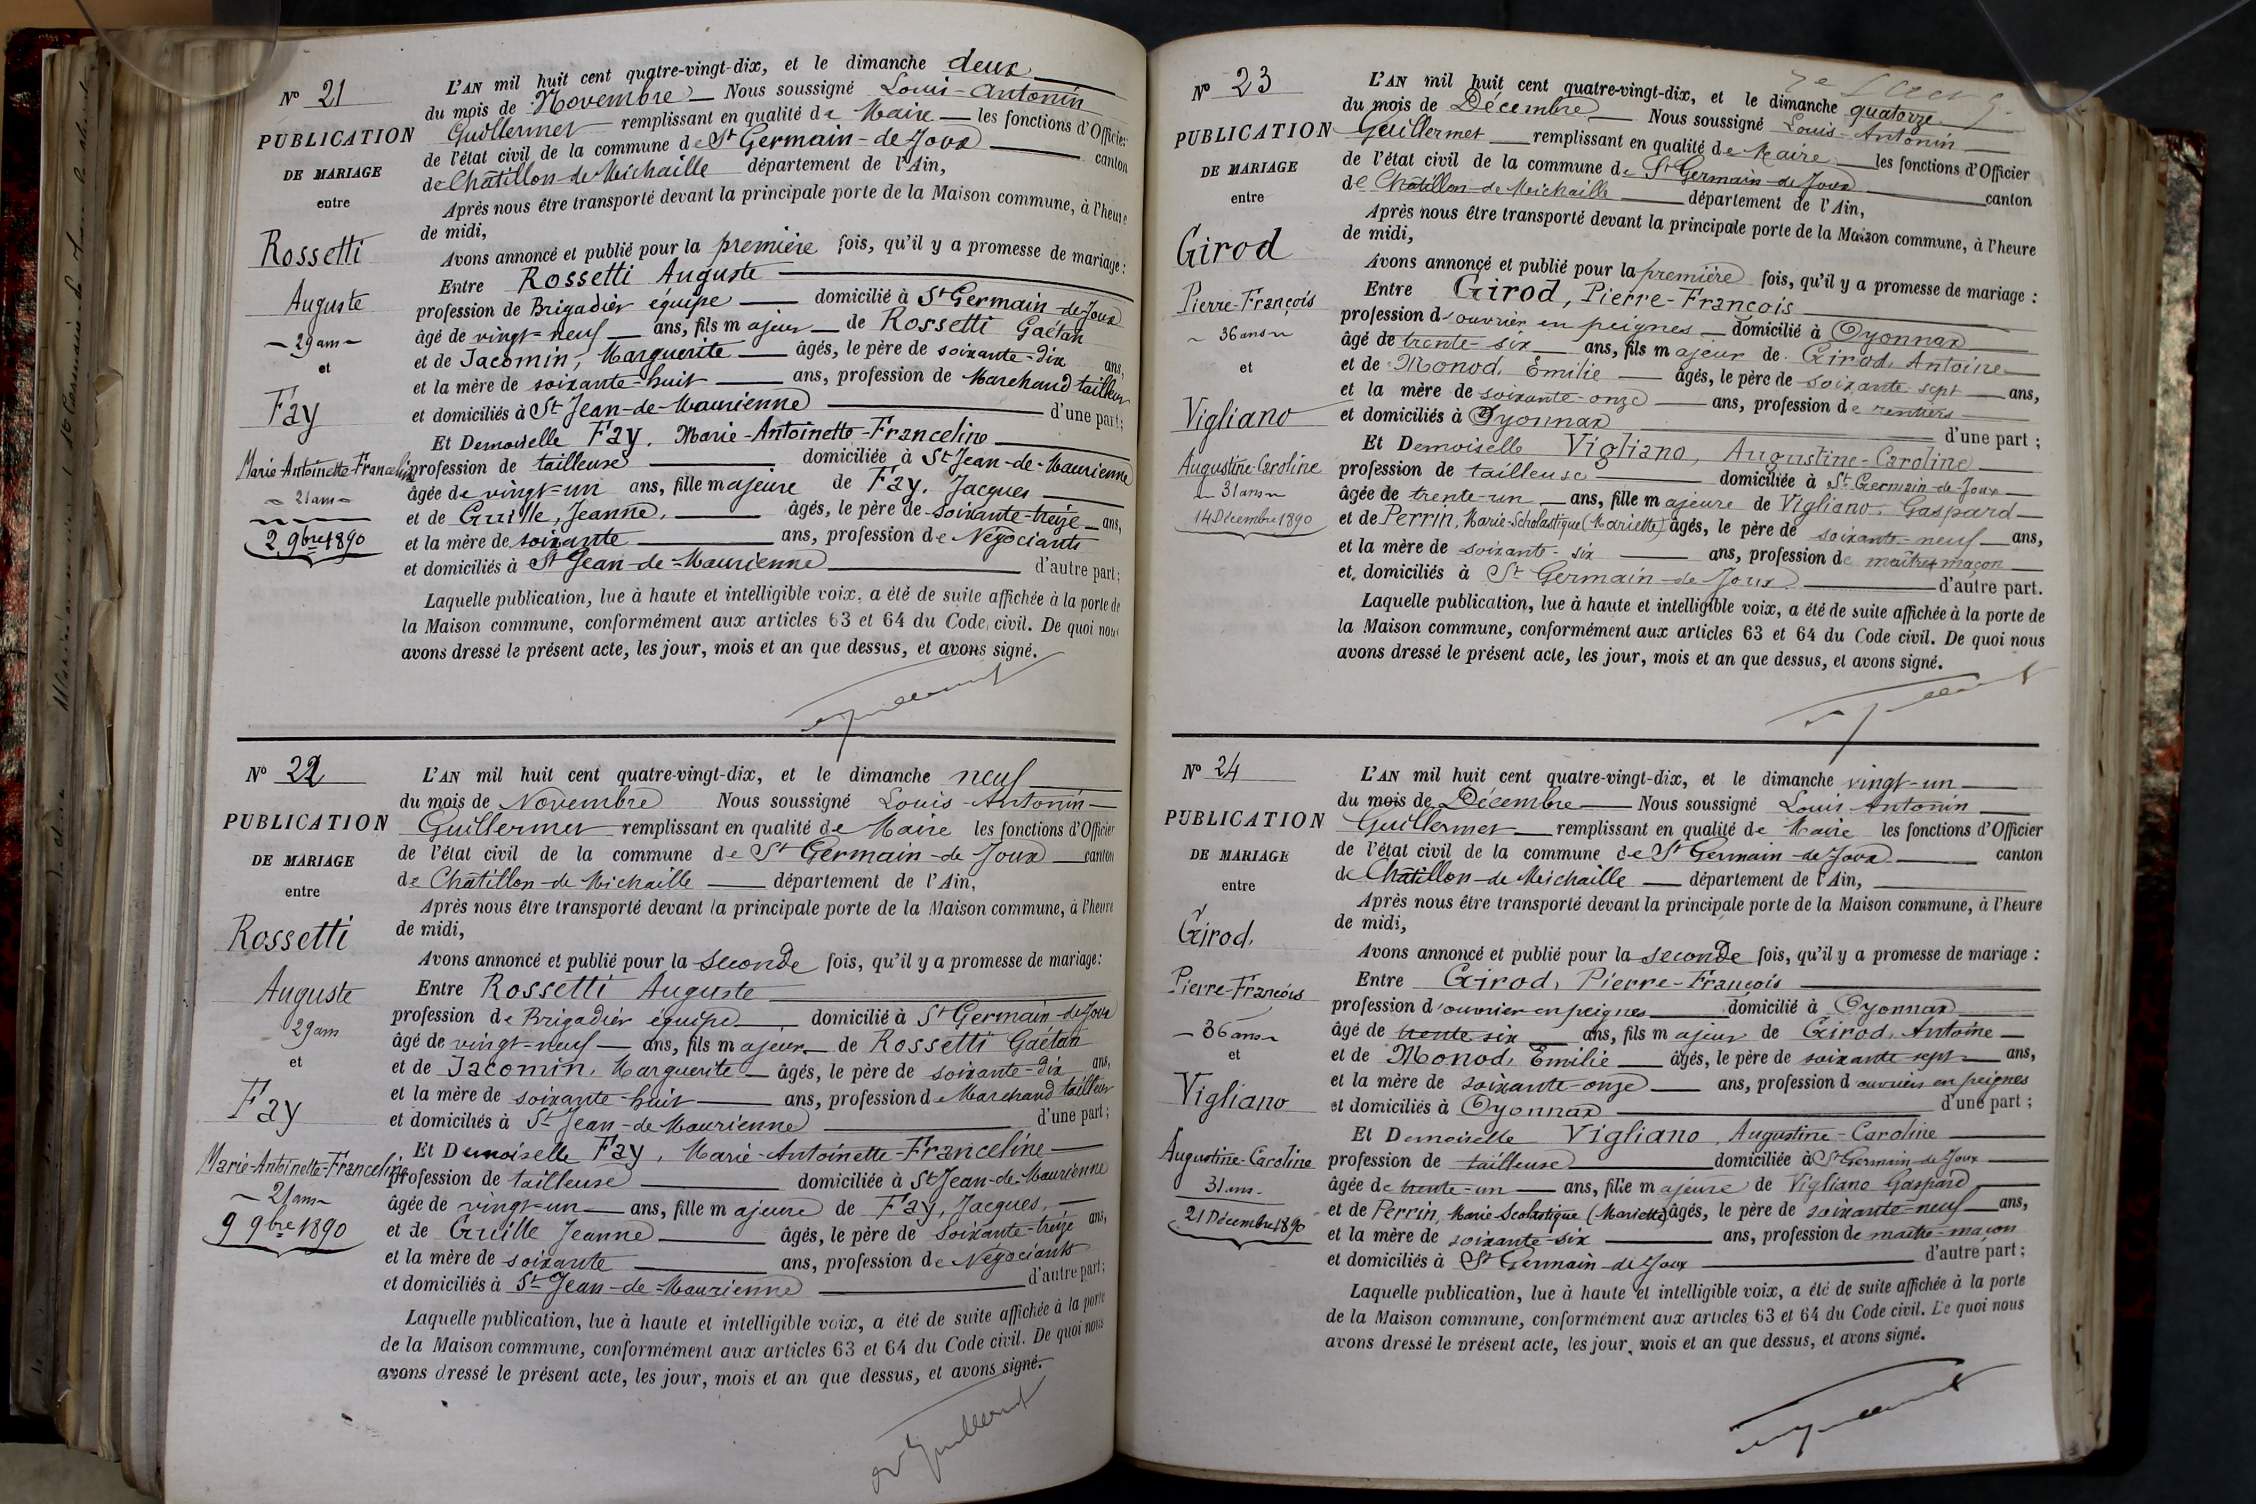 N° 21
PUBLICATION
DE MARIAGE
entre
Rossetti
Auguste
29 ans
et
Fay
Marie-Antoinette-Franceline
21 ans
2 9bre 1890
L'AN mil huit cent quatre-vingt-dix, et le dimanche deux
du mois de Novembre Nous soussigné Louis-Antonin
Guillermet remplissant en qualité de Maire les fonctions d'Officier
de l'état civil de la commune de St Germain-de-Joux canton
de Châtillon-de-Michaille département de l'Ain,
Après nous être transporté devant la principale porte de la Maison commune, à l'heure
de midi,
Avons annoncé et publié pour la première fois, qu'il y a promesse de mariage :
Entre Rossetti Auguste
profession de Brigadier équipe domicilié à St Germain-de-Joux
âgé de vingt-neuf ans, fils majeur de Rossetti Gaétan
et de Jacomin, Marguerite âgés, le père de soixante-dix ans,
et la mère de soixante-huit ans, profession de Marchand tailleur
et domiciliés à St Jean-de-Maurienne d'une part;
Et Demoiselle Fay, Marie-Antoinette-Franceline
profession de tailleuse domiciliée à St Jean-de-Maurienne
âgée de vingt-un ans, fille majeure de Fay, Jacques
et de Guille, Jeanne, âgés, le père de soixante-treize ans,
et la mère de soixante ans, profession de Négociants
et domiciliés à St Jean-de-Maurienne d'autre part;
Laquelle publication, lue à haute et intelligible voix, a été de suite affichée à la porte de
la Maison commune, conformément aux articles 63 et 64 du Code civil. De quoi nous
avons dressé le présent acte, les jour, mois et an que dessus, et avons signé.
N° 22
PUBLICATION
DE MARIAGE
entre
Rossetti
Auguste
29 ans
et
Fay
Marie-Antoinette-Franceline
21 ans
9 9bre 1890
L'AN mil huit cent quatre-vingt-dix, et le dimanche neuf
du mois de Novembre Nous soussigné Louis-Antonin
Guillermet remplissant en qualité de Maire les fonctions d'Officier
de l'état civil de la commune de St Germain-de Joux canton
de Châtillon-de Michaille département de l'Ain,
Après nous être transporté devant la principale porte de la Maison commune, à l'heure
de midi,
Avons annoncé et publié pour la seconde fois, qu'il y a promesse de mariage:
Entre Rossetti Auguste
profession de Brigadier équipe domicilié à St Germain-de-Joux
âgé de vingt-neuf ans, fils majeur de Rossetti Gaétan
et de Jacomin, Marguerite âgés, le père de soixante-dix ans,
et la mère de soixante-huit ans, profession de Marchand tailleur
et domiciliés à St Jean-de Maurienne d'une part;
Et Demoiselle Fay, Marie-Antoinette-Franceline
profession de tailleuse domiciliée à St Jean-de-Maurienne
âgée de vingt-un ans, fille majeure de Fay, Jacques,
et de Guille Jeanne âgés, le père de soixante-treize ans,
et la mère de soixante ans, profession de Négociants
et domiciliés à St Jean-de-Maurienne d'autre part;
Laquelle publication, lue à haute et intelligible voix, a été de suite affichée à la porte
de la Maison commune, conformément aux articles 63 et 64 du Code civil. De quoi nous
avons dressé le présent acte, les jour, mois et an que dessus, et avons signé.
N° 23
PUBLICATION
DE MARIAGE
entre
Girod
Pierre-François
36 ans
et
Vigliano
Augustine-Caroline
31 ans
14 Décembre 1890
L'AN mil huit cent quatre-vingt-dix, et le dimanche quatorze
du mois de Décembre Nous soussigné Louis-Antonin
Guillermet remplissant en qualité de Maire les fonctions d'Officier
de l'état civil de la commune de St Germain-de-Joux canton
de Châtillon-de-Michaille département de l'Ain,
Après nous être transporté devant la principale porte de la Maison commune, à l'heure
de midi,
Avons annoncé et publié pour la première fois, qu'il y a promesse de mariage :
Entre Girod, Pierre-François
profession d'ouvrier en peignes domicilié à Oyonnax
âgé de trente-six ans, fils majeur de Girod, Antoine
et de Monod, Emilie âgés, le père de soixante sept ans,
et la mère de soixante-onze ans, profession de rentiers
et domiciliés à Oyonnax d'une part ;
Et Demoiselle Vigliano, Augustine-Caroline
profession de tailleuse domiciliée à St Germain-de-Joux
âgée de trente-un ans, fille majeure de Vigliano, Gaspard
et de Perrin, Marie-Scholastique (Mariette) âgés, le père de soixante-neuf ans,
et la mère de soixante-six ans, profession de maître maçon
et domiciliés à St Germain-de Joux d'autre part.
Laquelle publication, lue à haute et intelligible voix, a été de suite affichée à la porte de
la Maison commune, conformément aux articles 63 et 64 du Code civil. De quoi nous
avons dressé le présent acte, les jour, mois et an que dessus, et avons signé.
N° 24
PUBLICATION
DE MARIAGE
entre
Girod,
Pierre-François
36 ans
et
Vigliano
Augustine-Caroline
31 ans
21 Décembre 1890
L'AN mil huit cent quatre-vingt-dix, et le dimanche vingt-un
du mois de Décembre Nous soussigné Louis Antonin
Guillermet remplissant en qualité de Maire les fonctions d'Officier
de l'état civil de la commune de St Germain-de-Joux canton
de Châtillon-de Michaille département de l'Ain,
Après nous être transporté devant la principale porte de la Maison commune, à l'heure
de midi,
Avons annoncé et publié pour la seconde fois, qu'il y a promesse de mariage :
Entre Girod, Pierre-François
profession d'ouvrier en peignes domicilié à Oyonnax
âgé de trente six ans, fils majeur de Girod, Antoine
et de Monod, Emilie âgés, le père de soixante sept ans,
et la mère de soixante-onze ans, profession d'ouvriers en peignes
et domiciliés à Oyonnax d'une part ;
Et Demoiselle Vigliano, Augustine-Caroline
profession de tailleuse domiciliée à St Germain-de Joux
âgée de trente-un ans, fille majeure de Vigliano Gaspard
et de Perrin, Marie Scolastique (Mariette) âgés, le père de soixante-neuf ans,
et la mère de soixante-six ans, profession de maître-maçon
et domiciliés à St Germain-de Joux d'autre part ;
Laquelle publication, lue à haute et intelligible voix, a été de suite affichée à la porte
de la Maison commune, conformément aux articles 63 et 64 du Code civil. De quoi nous
avons dressé le présent acte, les jour, mois et an que dessus, et avons signé.